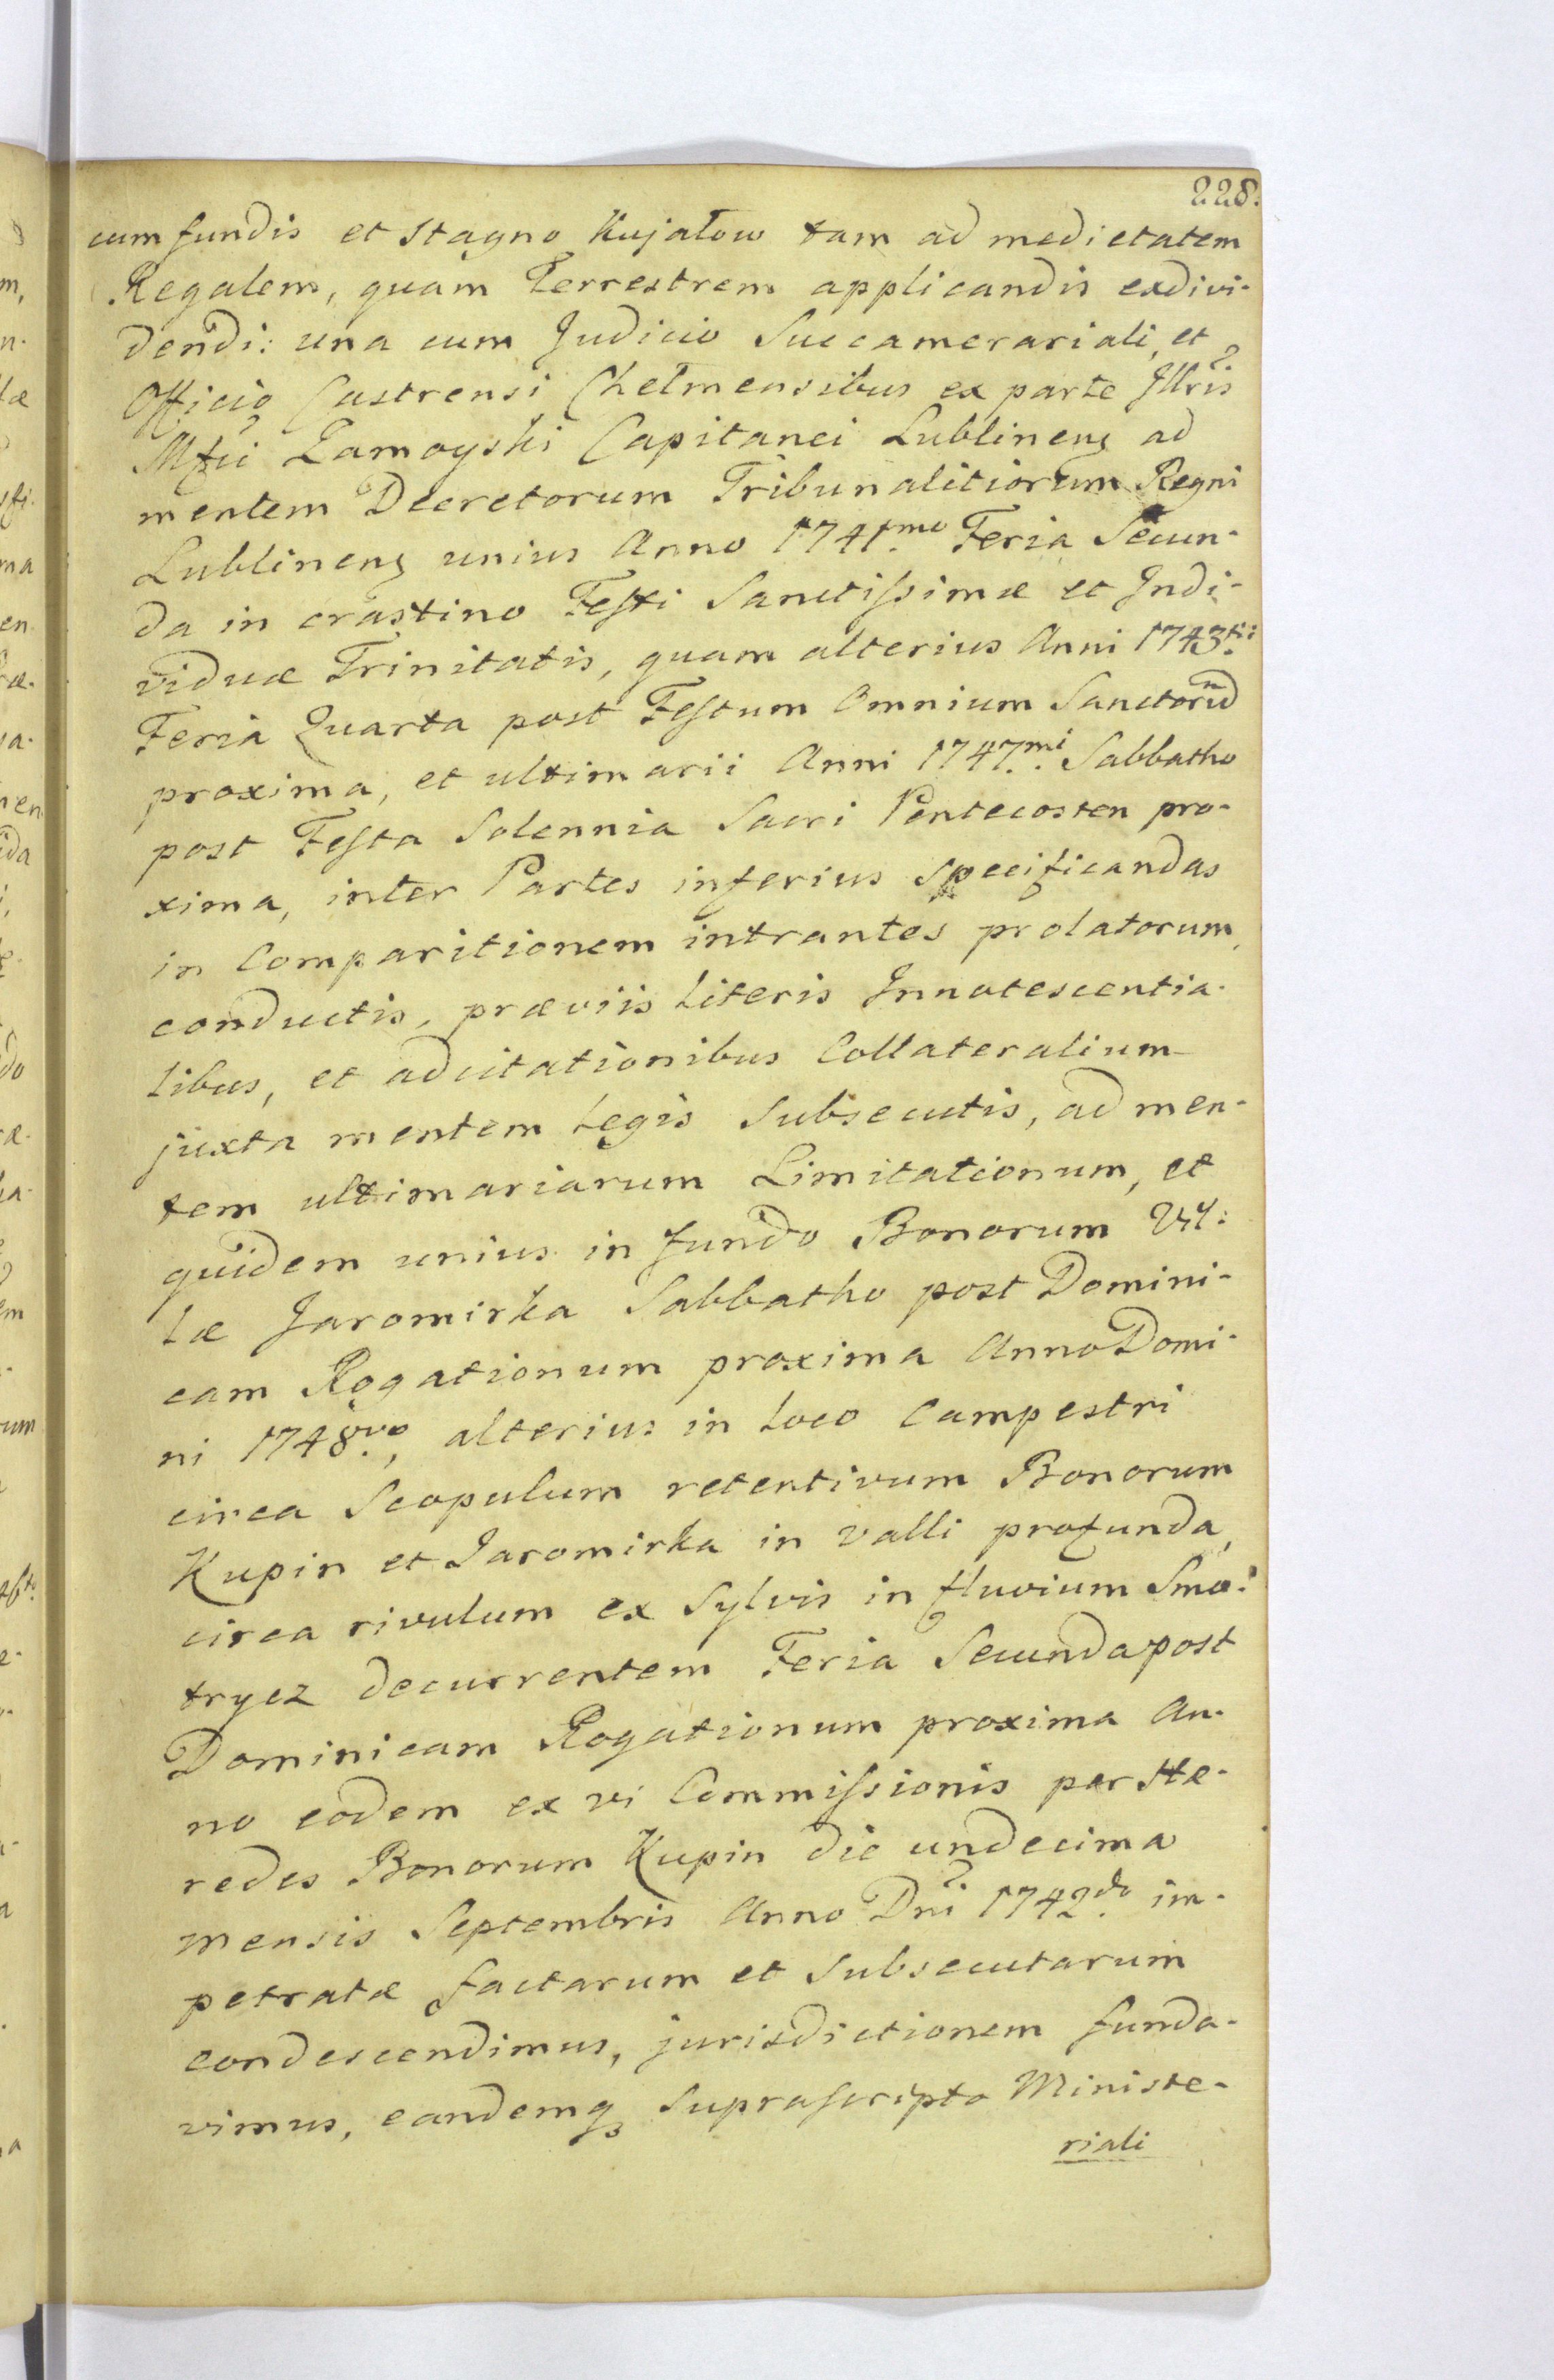 228.
cum fundis et stagno Kujatow tam ad medietatem
Regalem, quam Terrestrem applicandis exdivi-
dendi: una cum Judicio Succamerariali, et
Officio Castrensi Chelmensibus ex parte Illris
Mfci Zamoyski Capitanei Lublinens ad
mentem Decretorum Tribunalitiorum Regni
Lublinens unius Anno 1741.mo Feria Secun-
da in crastino Festi Sanctissimæ et Indi-
viduæ Trinitatis, quam alterius Anni 1743.tii
Feria Quarta post Festum Omnium Sanctorũ
proxima, et ultimarii Anni 1747.mi Sabbatho
post Festa Solennia Sacri Pentecosten pro-
xima, inter Partes inferius specificandas
in Comparitionem intrantes prolatorum,
conductis, præviis Literis Innotescentia-
libus, et adcitationibus Collateralium
juxta mentem Legis subsecutis, ad men-
tem ultimariarum Limitationum, et
quidem unius in fundo Bonorum Vil:
læ Jaromirka Sabbatho post Domini-
cam Rogationum proxima Anno Domi-
ni 1748.vo, alterius in Loco Campestri
circa Scopulum retentivum Bonorum
Kupin et Jaromirka in valli profunda,
circa rivulum ex Sylvis in fluvium Smo:
trycz decurrentem Feria Secunda post
Dominicam Rogationum proxima An-
no eodem ex vi Commissionis per Hæ-
redes Bonorum Kupin die undecima
mensis Septembris Anno Dni 1742.do im-
petratæ factarum et subsecutarum
condescendimus, jurisdictionem funda-
vimus, eandemq suprascripto Ministe-
riali